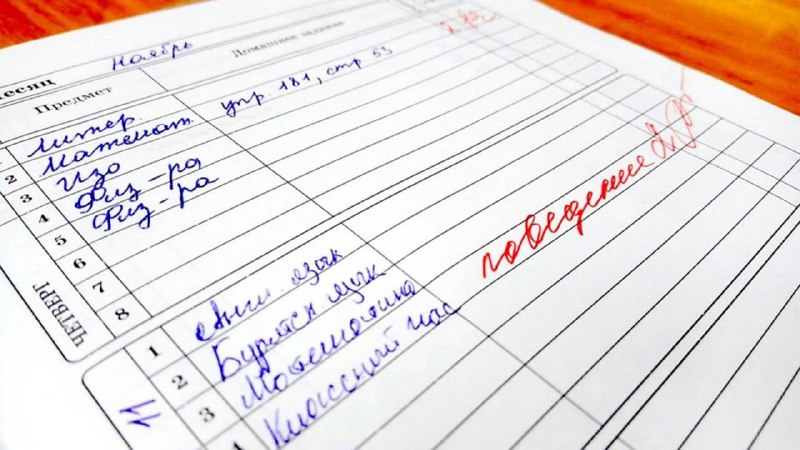 есяц ноябрь
Предмет Домашнее задание
1 литер.
2 Математ. упр 181, стр 53
3 Изо
4 Физ-ра
5 Физ-ра
6
7
8
ЧЕТВЕРГ
1 Англ. язык
2 Бурятск язык
3 Математика
Классный час
11
поведение 2